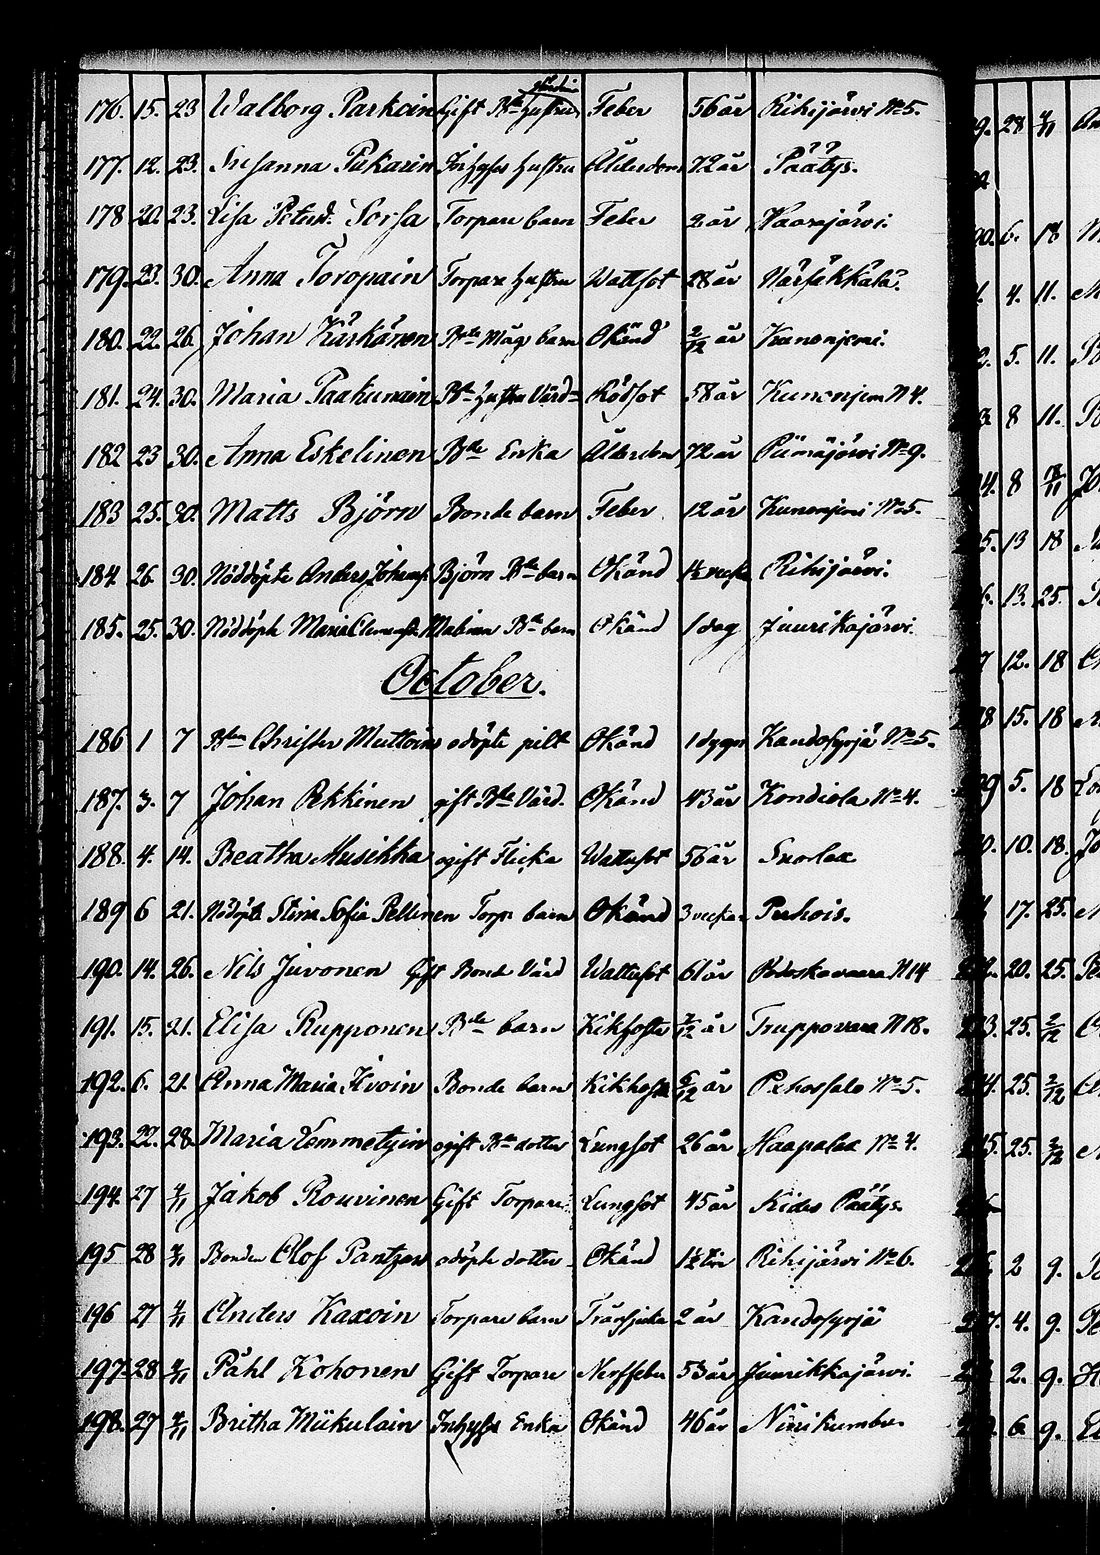 176. 15. 23 Walborg Parkoin Gift Bde Hustru Feber 56 år Rihijärvi No 5.
177. 12. 23. Susanna Pukarin Inhyses Hustru Ålderdom 72 år Päätys.
178 20. 23. Lisa Petersd. Sorsa Torpare barn Feber 2 år Waarajärvi.
179. 23. 30. Anna Toropain Torpare Hustru Wattsot 28 år Närsäkkälä.
180. 22. 26. Johan Kärkänen Bde Måg barn Okänd 2/12 år Kunonjemi.
181. 24. 30. Maria Paakunain Bde Hustru Värd Rödsot 58 år Kunonjem N 4.
182 23 30. Anna Eskelinen Bde Enka Ålderdom 72 år Piimäjärvi No 9.
183 25. 30. Matts Björn Bonde barn Feber 12 år Kunonjemi No 5.
184 26. 30. Nöddöpte Anders Johanss Björn Bde barn Okänd 1½ vecka Rihijärvi.
185. 25. 30. Nöddöpte Maria Clemensd. Mabinen Bde barn Okänd 1 dag Juurikajärvi.
October.
186 1 7 Bden Christer Muttoins odöpte pilt Okänd 1 dygn Kandosyrjä No 5.
187. 3. 7 Johan Pekkinen gift Bde Värd. Okänd 43 år Kondiola No 4.
188. 4. 14. Beatha Musikka ogift Flicka Wattusot 56 år Suorlax
189 6 21. Nöddöpte Stina Sofia Pellinen Torp. barn Okänd 3 veckor Puhois.
190. 14. 26. Nils Juvonen Gift Bonde Värd Wattusot 61 år Podoskavaara N 14
191. 15. 21. Elisa Rupponen Bde barn Kikhosta 7/12 år Truppovaara N 18.
192. 6. 21. Anna Maria Ivoin Bonde barn Kikhosta 5/12 år Puhossalo No 5.
193. 22. 28. Maria Lemmetyin ogift Bde dotter Lungsot 26 år Haapalax No 4.
194. 27 4/11 Jakob Rouvinen Gift Torpare Lungsot 45 år Kides Päätys.
195 28 4/11 Bonden Olof Pantzars odöpte dotter Okänd 1½ tim Rihijärvi No 6.
196 27 4/11 Anders Kaxoin Torpare barn Trånsjuka 2 år Kandosyrjä
197. 28 4/11 Påhl Kohonen Gift Torpare Nerffeber 53 år Juurikkajärvi.
198. 27 4/11 Britha Mikulain Inhyses Enka Okänd 46 år Niinikumbu.